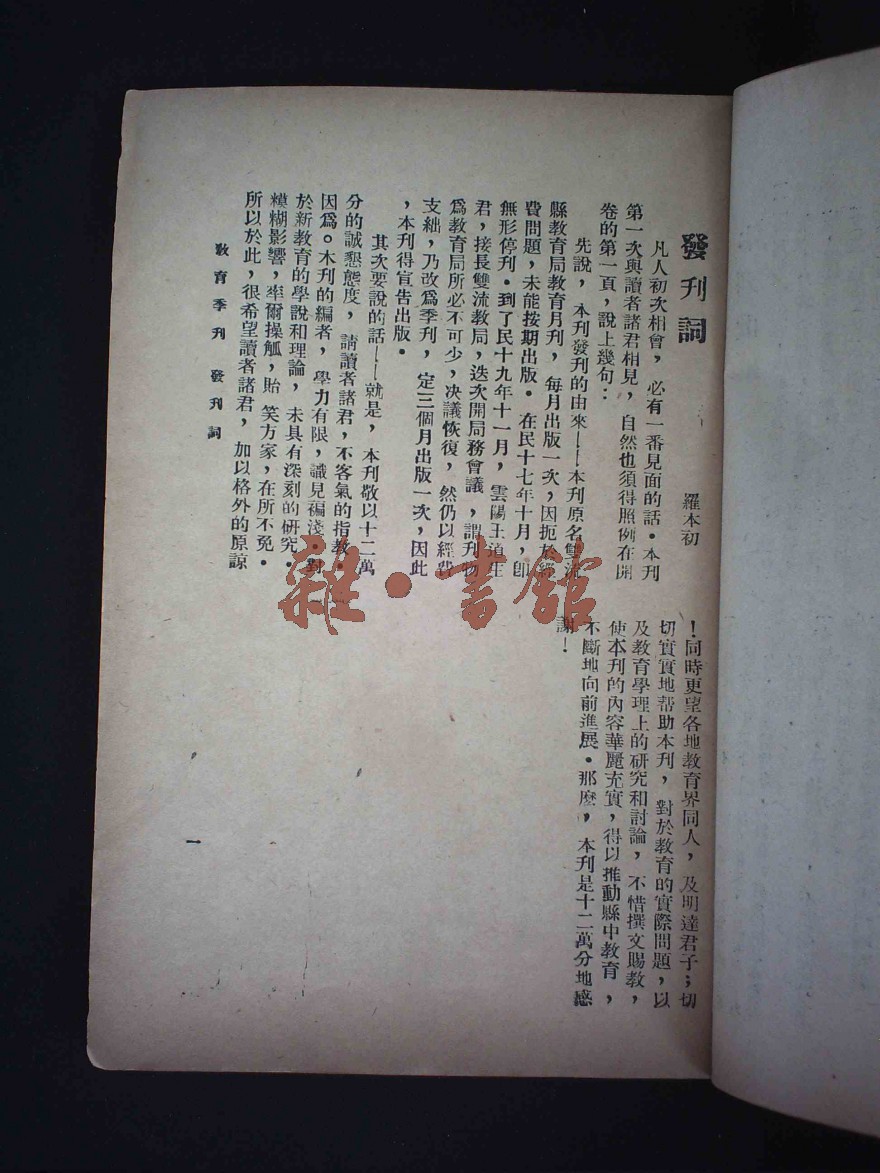 發刊詞
羅本初
凡人初次相會，必有一番見面的話。本刊
第一次與讀者諸君相見，自然也須得照例在開
卷的第一頁，說上幾句：
先說，本刊發刊的由來——本刊原名雙流
縣教育局教育月刊，每月出版一次，因扼於經
費問題，未能按期出版。在民十七年十月，卽
無形停刊。到了民十九年十一月，雲陽王道
君，接長雙流教局，迭次開局務會議，謂刊物
爲教育局所必不可少，決議恢復，然仍以經費
支絀，乃改爲季刊，定三個月出版一次，因此
，本刊得宣告出版。
其次要說的話——就是，本刊敬以十二萬
分的誠懇態度，請讀者諸君，不客氣的指教。
因爲。本刊的編者，學力有限，識見褊淺。對
於新教育的學說和理論，未具有深刻的研究。
糢糊影響，率爾操觚，貽笑方家，在所不免。
所以於此，很希望讀者諸君，加以格外的原諒
！同時更望各地教育界同人，及明達君子；切
切實實地幇助本刊，對於教育的實際問題，以
及教育學理上的研究和討論，不惜撰文賜教，
使本刊的內容華麗充實，得以推動縣中教育，
不斷地向前進展。那麼，本刊是十二萬分地感
謝！
教育季刊 發刊詞
一
雜·書館